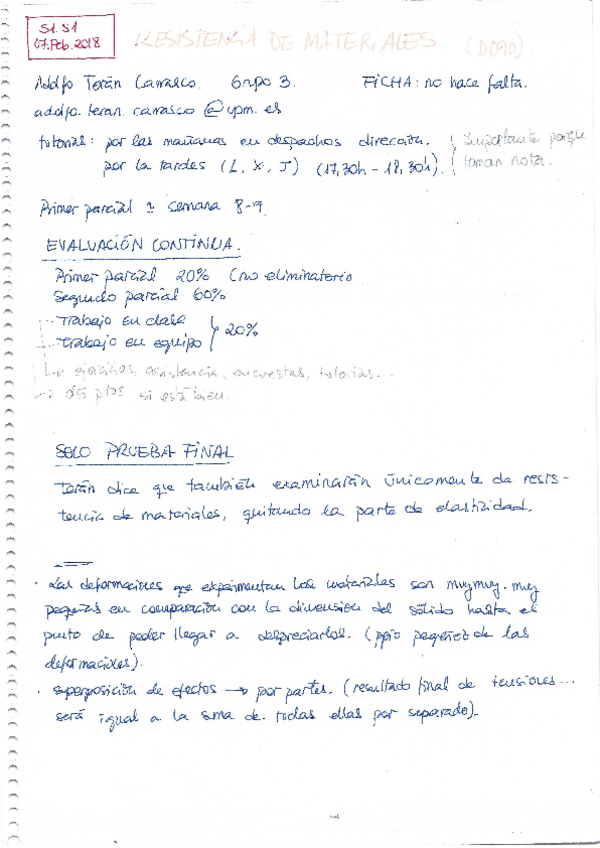 S1. S1
07. Feb. 2018
RESISTENCIA DE MATERIALES. (D090).
Adolfo Terán Carrasco. Grupo 3. FICHA: no hace falta.
adolfo.teran.carrasco@upm.es
tutorías: por las mañanas en despachos dirección. importante porque
por la tardes (L, X, J) (17,30h - 18,30h). toman nota.
Primer parcial semana 8-9.
EVALUACIÓN CONTINUA.
Primer parcial 20% (no eliminatorio
Segundo parcial 60%
- Trabajo en clase
- Trabajo en equipo } 20%
ejercicios, asistencia, encuestas, tutorías...
→ 0'5 ptos si está bien.
SOLO PRUEBA FINAL
Terán dice que también examinarán únicamente de resis-
tencia de materiales, quitando la parte de elastizidad.
· Las deformaciones que experimentan los materiales son muy muy. muy
pequeñas en comparación con la dimensión del sólido hasta el
punto de poder llegar a despreciarlas. (ppio pequeñez de las
deformaciones).
· superposición de efectos → por partes. (resultado final de tensiones...
será igual a la suma de todas ellas por separado).